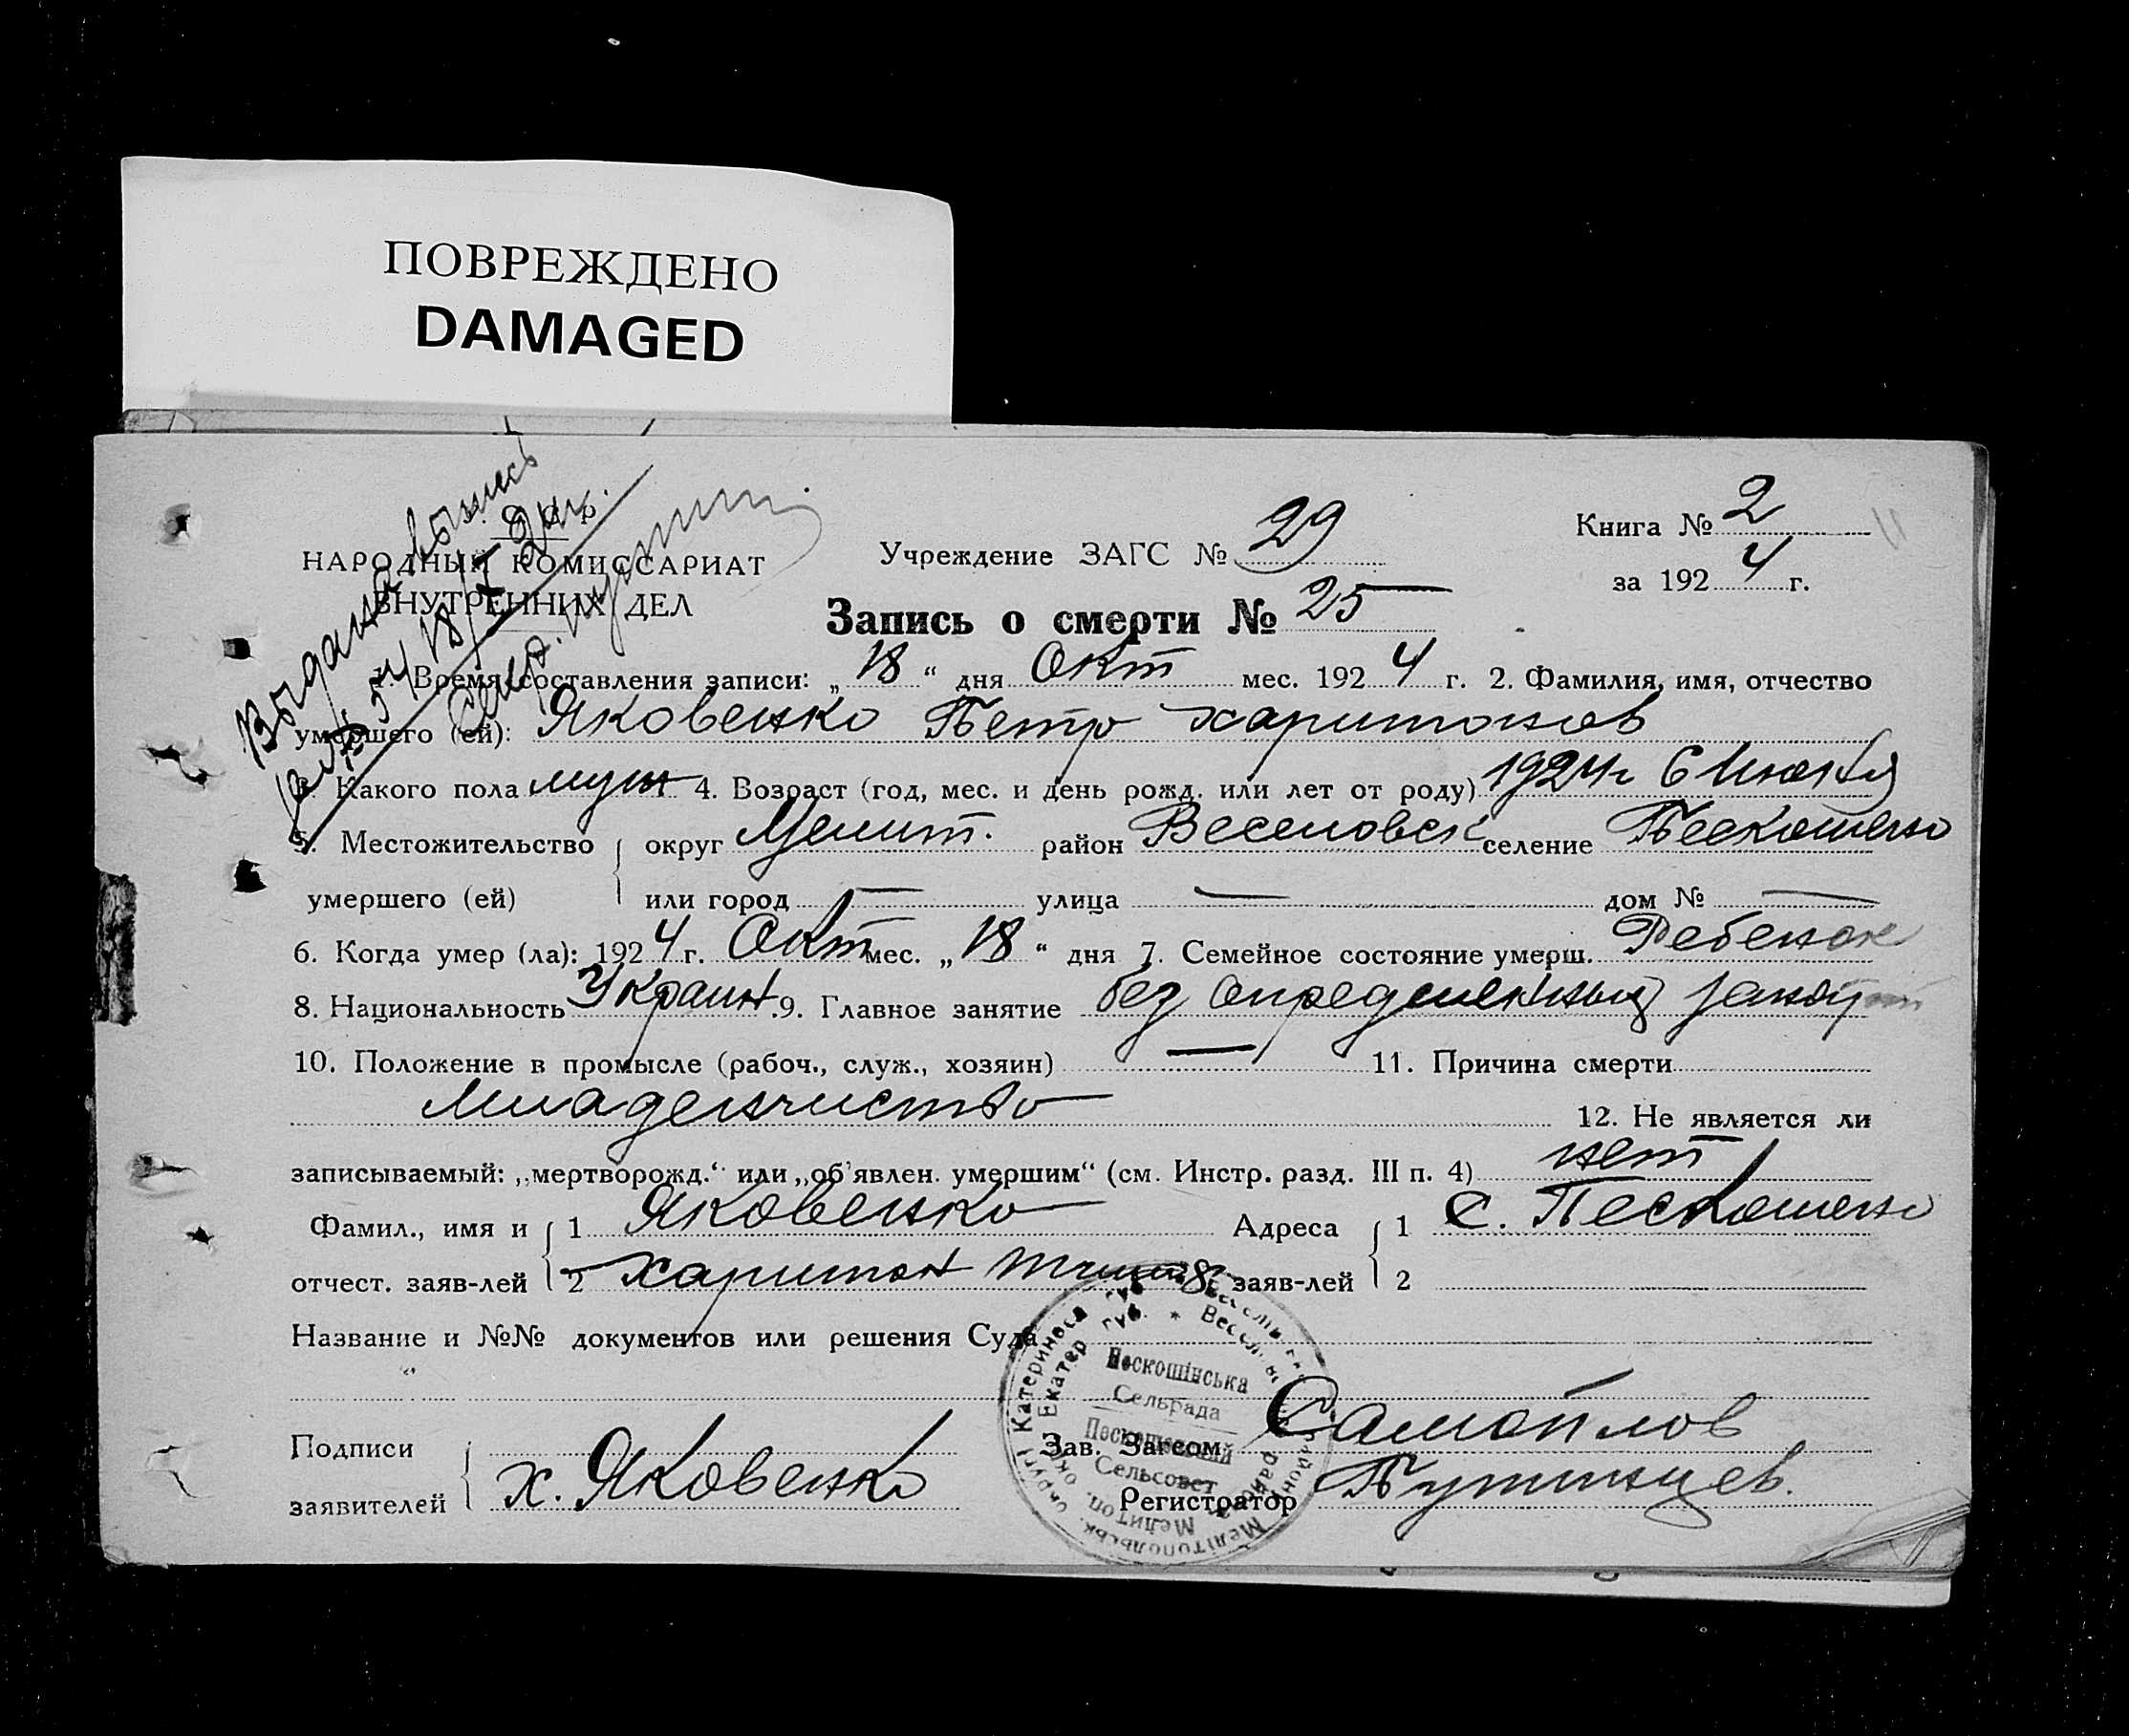 ПОВРЕЖДЕНО
DAMAGED
Выдана выпись
НАРОДНЫЙ КОМИССАРИАТ
ВНУТРЕННИХ ДЕЛ
Учреждение ЗАГС № 29
Книга № 2
за 1924 г.
Запись о смерти № 25
1. Время составления записи: „18“ дня Окт мес. 1924 г. 2. Фамилия, имя, отчество
умершего (ей): Яковенко Петр харитонов
3. Какого пола муж 4. Возраст (год, мес. и день рожд. или лет от роду) 1924 г 6 Июня
5. Местожительство округ Мелит. район Веселовск селение Пескошено
умершего (ей) или город — улица — дом № —
6. Когда умер (ла): 1924 г. Окт мес. „18“ дня 7. Семейное состояние умерш. Ребенок
8. Национальность Украин. 9. Главное занятие без определенных
10. Положение в промысле (рабоч., служ., хозяин) — 11. Причина смерти
Младенчиство
12. Не является ли
записываемый: „мертворожд.“ или „об'явлен. умершим“ (см. Инстр. разд. III п. 4) нет
Фамил., имя и 1 Яковенко Адреса 1 С. Пескошено
отчест. заяв-лей 2 харитон заяв-лей 2
Название и №№ документов или решения Суда
Подписи Зав. Загсом Самойлов
заявителей х. Яковенко Регистратор Путинцев.
Пескошінська
Сельрада
Пескошинский
Сельсовет